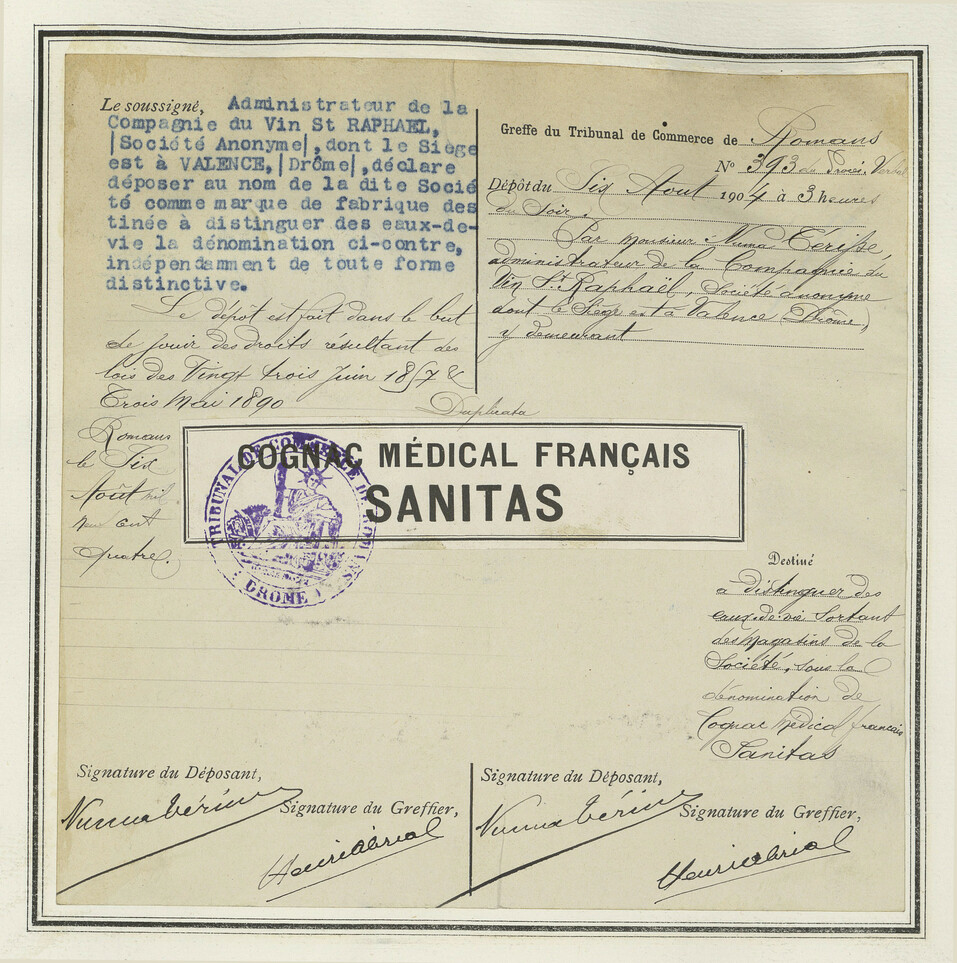 Le soussigné, Administrateur de la
Compagnie du Vin St RAPHAEL,
|Société Anonyme|, dont le Siège
est à VALENCE,|Drôme|,déclare
déposer au nom de la dite Socié
té comme marque de fabrique des
tinée à distinguer des eaux-de-
vie la dénomination ci-contre,
indépendamment de toute forme
distinctive.
Le dépôt est fait dans le but
de jouir des droits résultant des
lois des Vingt trois Juin 1857 &
Trois Mai 1890
Duplicata
Romans
le Six
Août mil
neuf cent
quatre.
Greffe du Tribunal de Commerce de Romans
N° 393 du Procès-Verbal
Dépôt du Six Août 1904 à 3 heures
du soir.
Par Monsieur Numa
administrateur de la Compagnie du
Vin St Raphaël, Société anonyme
dont le Siège est à Valence (Drôme)
y demeurant
COGNAC MÉDICAL FRANÇAIS
SANITAS
TRIBUNAL DE COMMERCE DE ROMANS
DROME
Destiné
à distinguer des
eaux-de-vie sortant
des Magasins de la
Société, sous la
dénomination de
Cognac Médical français
Sanitas
Signature du Déposant,
Signature du Greffier,
Signature du Déposant,
Signature du Greffier,